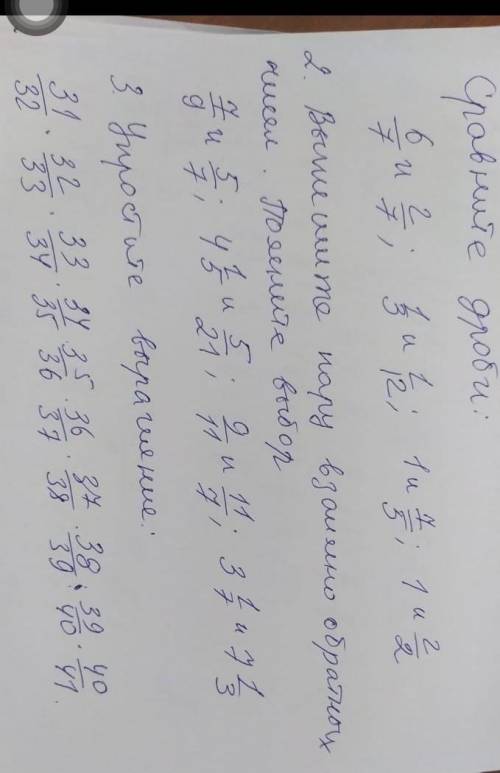 Сравните дроби:
6/7 и 2/7; 1/3 и 1/12; 1 и 7/3; 1 и 2/2
2. Выпишите пару взаимно обратных
чисел. Поясните выбор
7/9 и 5/7; 4 1/5 и 5/21; 9/11 и 11/7; 3 1/7 и 7 1/3
3 Упростите выражение:
31/32 · 32/33 · 33/34 · 34/35 · 35/36 · 36/37 · 37/38 · 38/39 · 39/40 · 40/41.